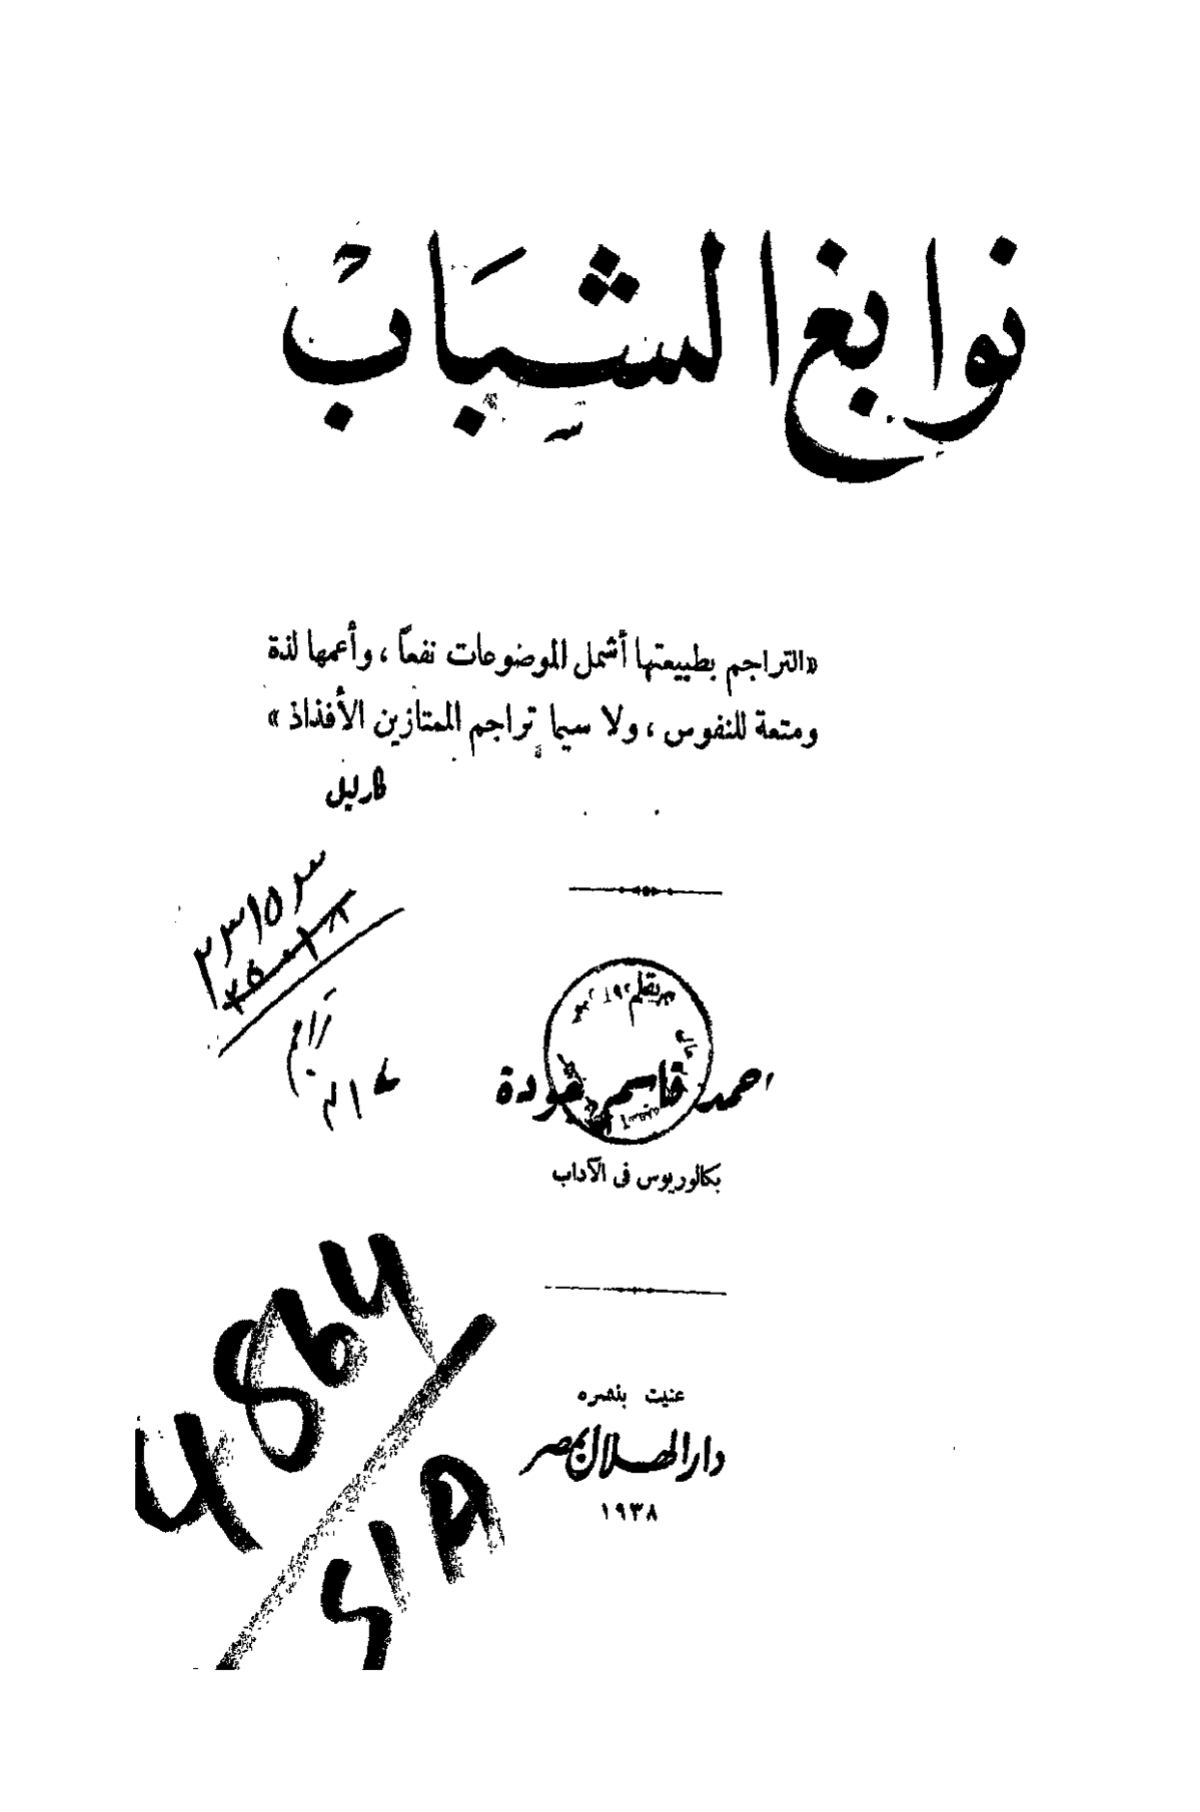 نوابغ الشَبَابْ
«التراجم بطبيعتها أشمل الموضوعات نفعاً ، وأعمها لذة
ومتعة للنفوس ، ولا سيما تراجم الممتازين الأفذاذ »
كارليل
٢٣١٥٣
تراجم
بقلم
احمد قاسم جودة
بكالوريوس فى الآداب
4864
عنيت بنشره
دار الهلال بمصر
١٩٣٨